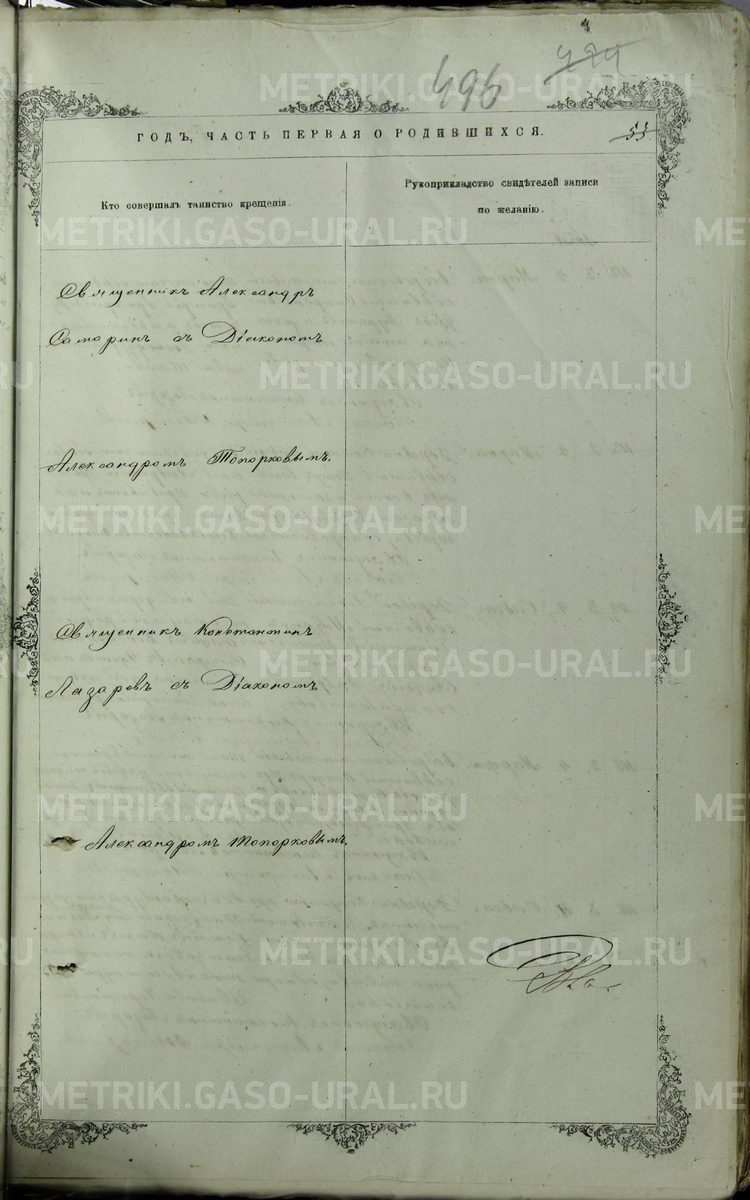 496
494
ГОДЪ, ЧАСТЬ ПЕРВАЯ О РОДИВШИХСЯ.
55
Кто совершалъ таинство крещенія.
Рукоприкладство свидѣтелей записи
по желанію.
Священникъ Александръ
Самаринъ съ Діакономъ
Александромъ Топорковымъ.
Священникъ Константинъ
Лазаревъ съ Діакономъ
Александромъ Топорковымъ.
METRIKI.GASO-URAL.RU